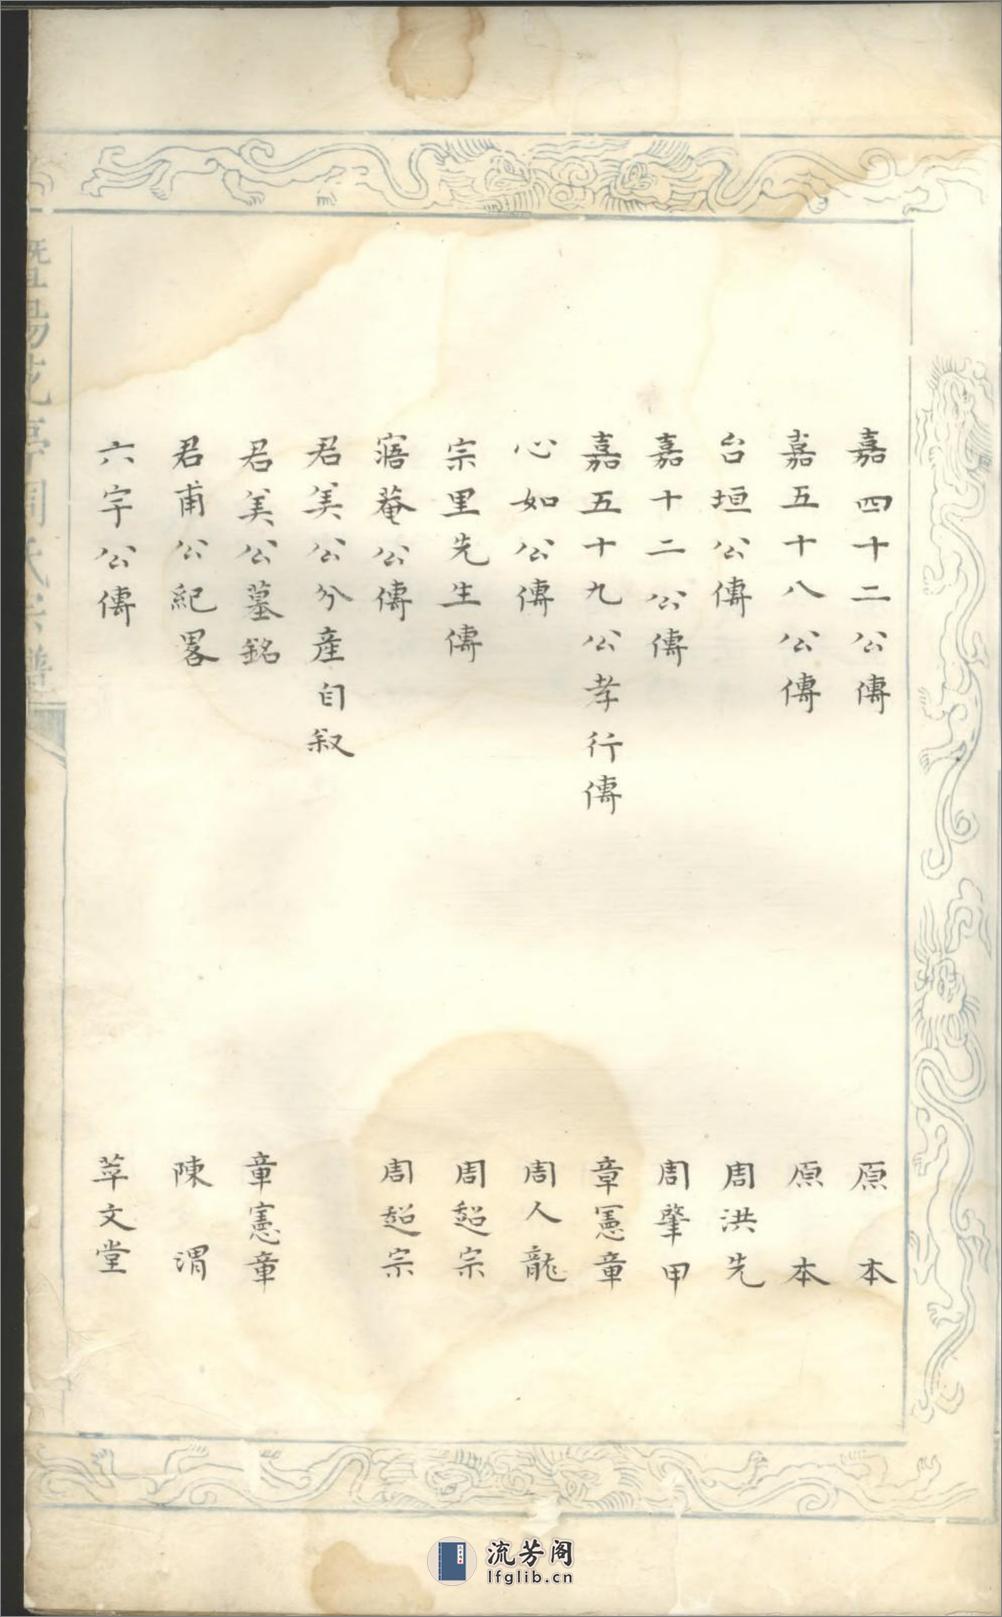 嘉四十二公傳 原本
嘉五十八公傳 原本
台垣公傳 周洪先
嘉十二公傳 周肇甲
嘉五十九公孝行傳 章憲章
心如公傳 周人龍
宗里先生傳 周超宗
寤菴公傳 周超宗
君美公分產自叙
君美公墓銘 章憲章
君甫公紀畧 陳渭
六宇公傳 萃文堂
暨陽花亭周氏宗譜
流芳阁
lfglib.cn